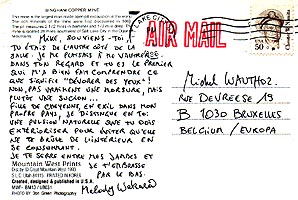 BINGHAM COPPER MINE
MIKE, SOUVIENS-TOI.
TU ÉTAIS DE L'AUTRE CÔTÉ DE LA
DANS TON REGARD ET TU ES LE PREMIER
QUI M'A BIEN FAIT COMPRENDRE CE
QUE SIGNIFIE "DÉVORER DES YEUX"!
NON, PAS VRAIMENT UNE MORSURE, MAIS
PLUTÔT UNE SUCCION...
FILLE DE CHEYENNE, EN EXIL DANS MON
PROPRE PAYS, JE DISTINGUE EN TOI
UNE PASSION NATURELLE QUE TU DOIS
EXTÉRIORISER POUR ÉVITER QU'ELLE
NE TE BRÛLE DE L'INTÉRIEUR EN
SE CONSUMANT.
JE TE SERRE ENTRE MES JAMBES ET
Mountain West Prints JE T'EMBRASSE
PAR LE BAS.
Created, designed & published in U.S.A.
Melody
AIR MAIL
50¢
Michel WAUTHOZ
RUE DEVREESE 19
B 1030 BRUXELLES
BELGIUM / EUROPA